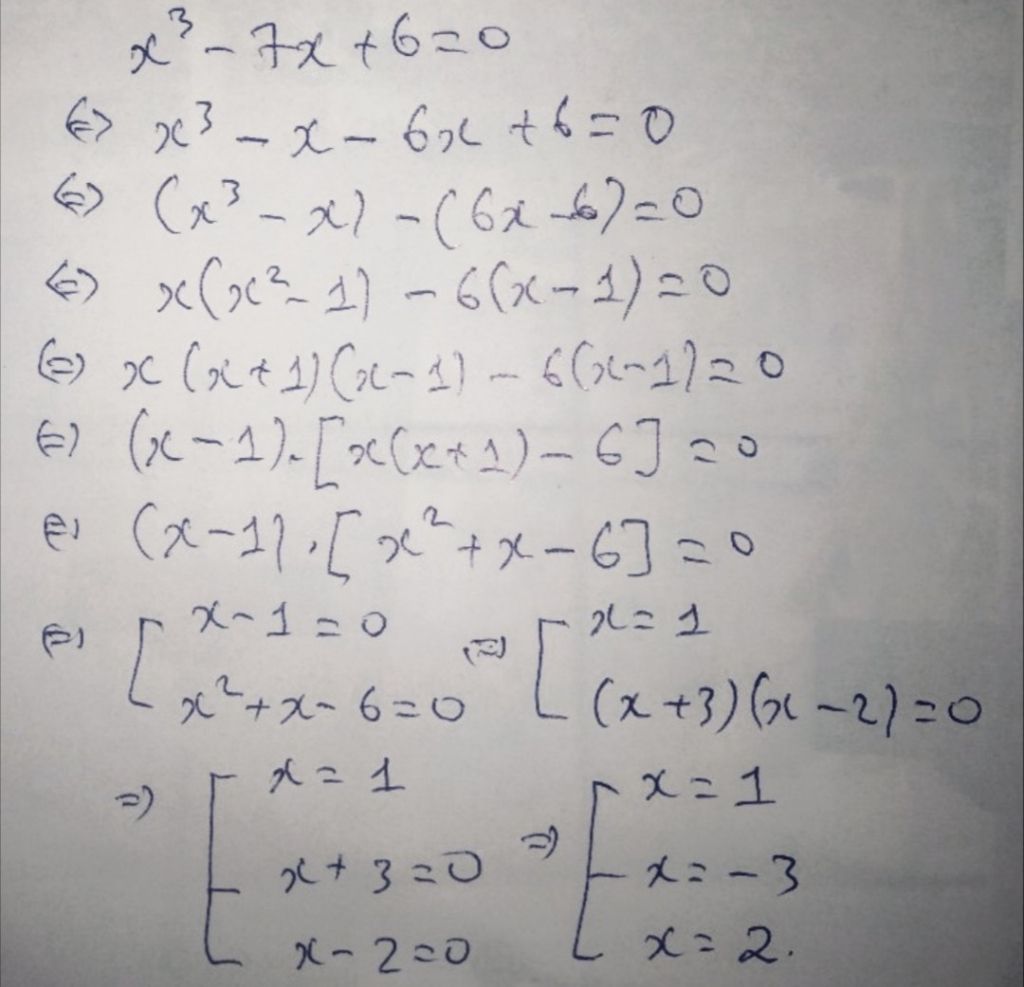 x³ - 7x + 6 = 0
⇔ x³ - x - 6x + 6 = 0
⇔ (x³ - x) - (6x - 6) = 0
⇔ x(x² - 1) - 6(x - 1) = 0
⇔ x(x + 1)(x - 1) - 6(x - 1) = 0
⇔ (x - 1).[x(x + 1) - 6] = 0
⇔ (x - 1).[x² + x - 6] = 0
⇔ [ x - 1 = 0 ⇔ [ x = 1
x² + x - 6 = 0 (x + 3)(x - 2) = 0
⇒ [ x = 1 ⇒ [ x = 1
x + 3 = 0 x = -3
x - 2 = 0 x = 2.